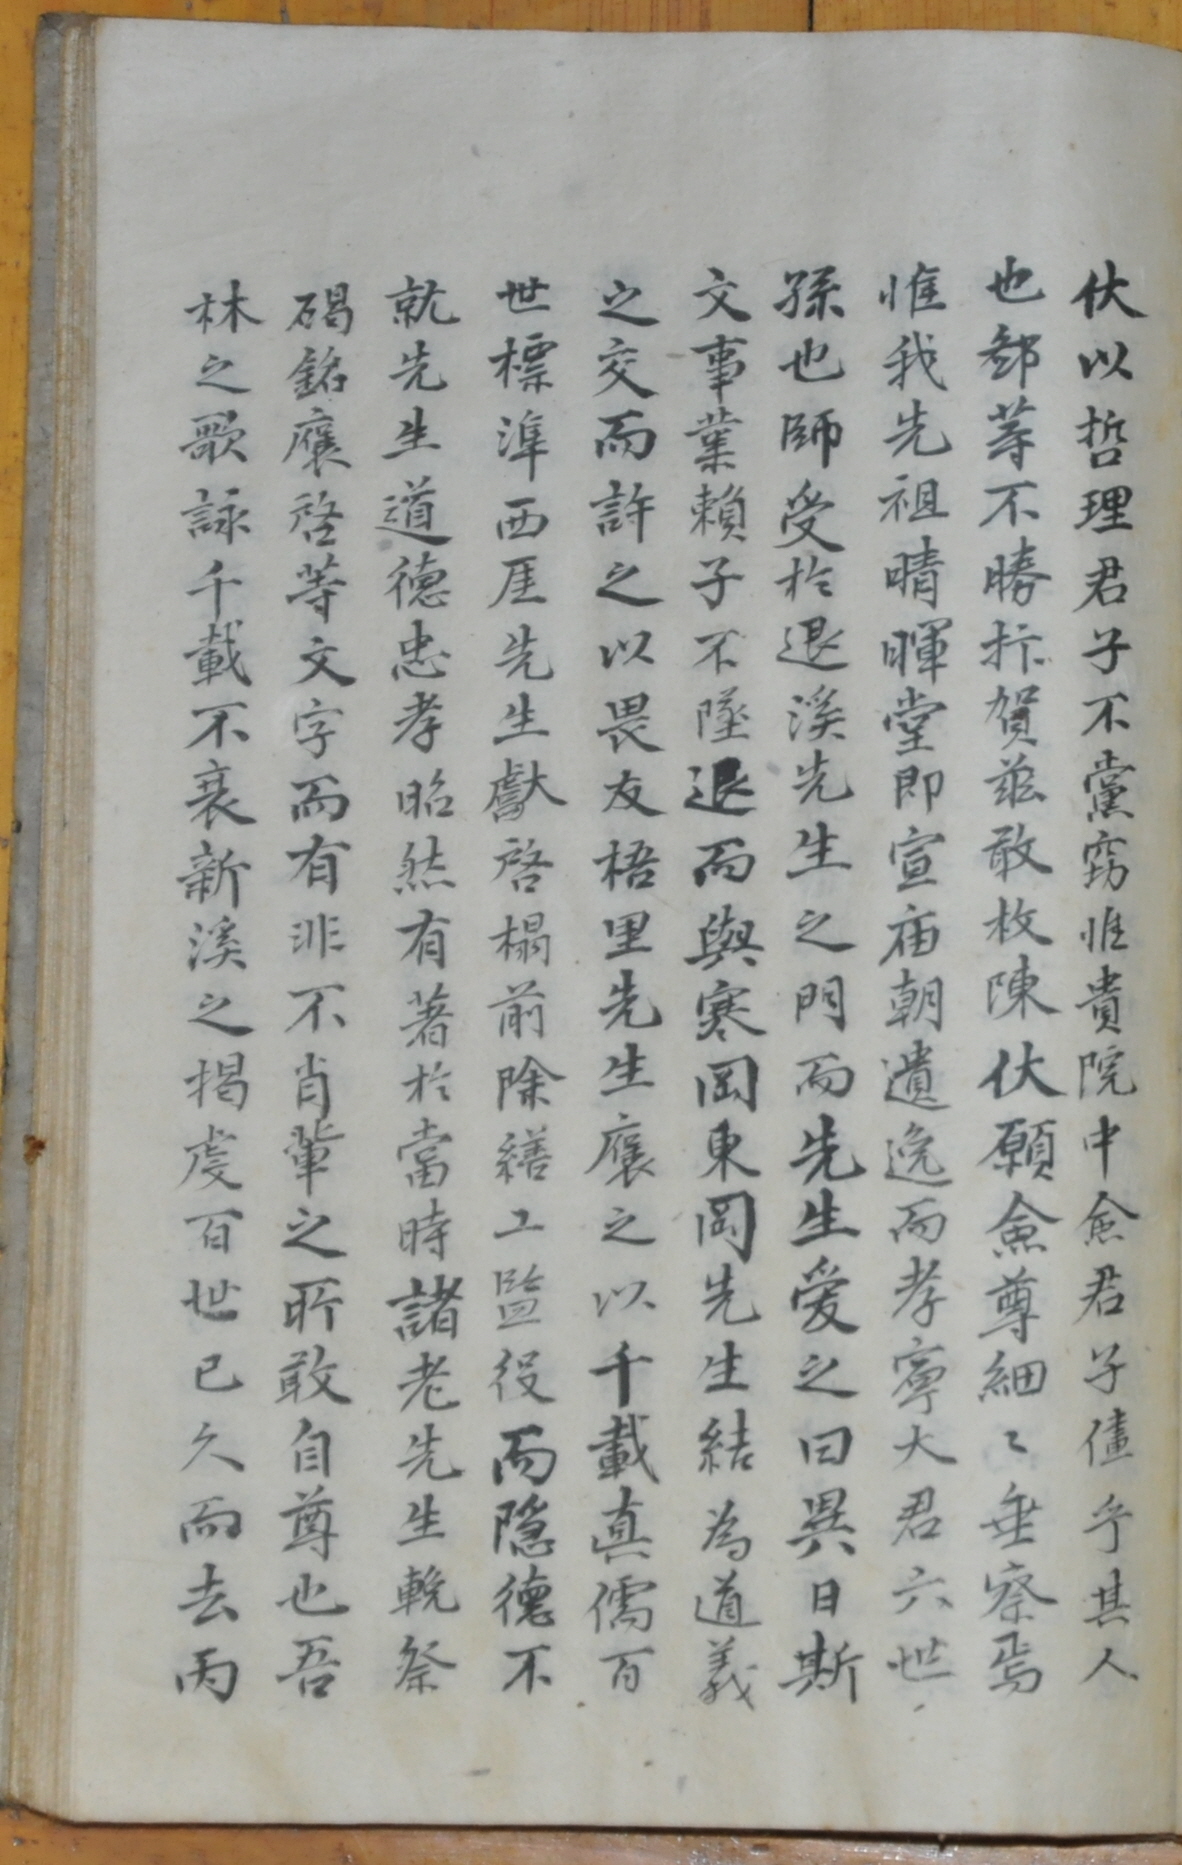 伏以哲理君子不黨窃惟貴院中僉君子僅乎其人
也鄙等不勝抃賀玆敢枚陳伏願僉尊細〻垂察焉
惟我先祖晴暉堂即宣庙朝遺逸而孝寧大君六世
孫也師受於退溪先生之門而先生愛之曰異日斯
文事業賴子不墜退而與寒岡東岡先生結為道義
之交而許之以畏友梧里先生褒之以千載真儒百
世標準西厓先生獻啓榻前除繕工監役而隐德不
就先生道德忠孝昭然有著於當時諸老先生輓祭
碣銘褒啓等文字而有非不肖輩之所敢自尊也吾
林之歌詠千載不衰新溪之揭虔百世已久而去丙